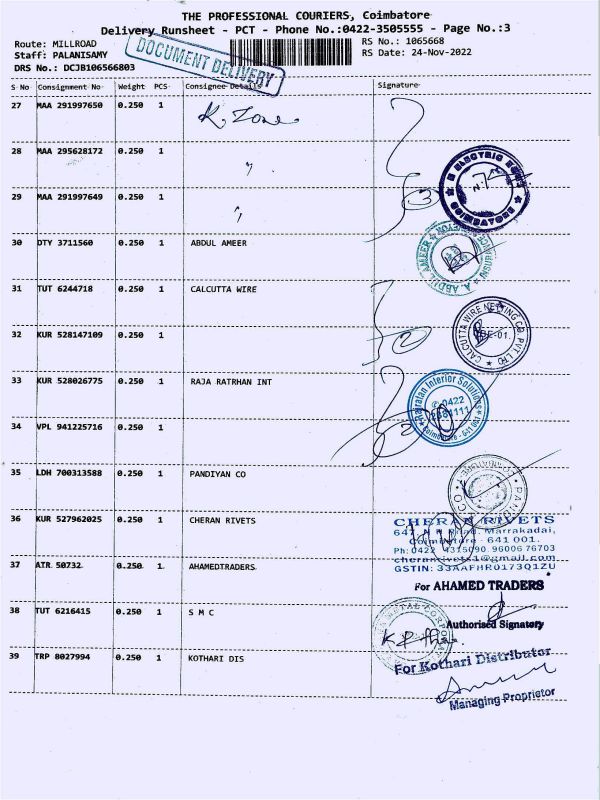 THE PROFESSIONAL COURIERS, Coimbatore
Delivery Runsheet - PCT - Phone No.:0422-3505555 - Page No.:3
Route: MILLROAD
Staff: PALANISAMY
DRS No.: DCJB106566803
DOCUMENT DELIVERY
RS No.: 1065668
RS Date: 24-Nov-2022
S No Consignment No Weight PCS Consignee Details Signature
27 MAA 291997650 0.250 1 K. Zone
28 MAA 295628172 0.250 1 "
29 MAA 291997649 0.250 1 "
3
ELECTRIC
COIMBATORE
30 DTY 3711560 0.250 1 ABDUL AMEER
A. ABDUL AMEER
31 TUT 6244718 0.250 1 CALCUTTA WIRE
32 KUR 528147109 0.250 1
2
CALCUTTA WIRE NETTING CO. PVT LTD
33 KUR 528026775 0.250 1 RAJA RATRHAN INT
Rajratan Interior Solutions
0422
Coimbatore - 641 001
34 VPL 941225716 0.250 1
2
35 LDH 700313588 0.250 1 PANDIYAN CO
36 KUR 527962025 0.250 1 CHERAN RIVETS
CHERAN RIVETS
Marrakadai,
Coimbatore - 641 001.
Ph: 0422 4315090 96006 76703
cheranrivets1@gmail.com
GSTIN: 33AAFHR0173Q1ZU
37 ATR 50732 0.250 1 AHAMEDTRADERS
For AHAMED TRADERS
Authorised Signatory
38 TUT 6216415 0.250 1 S M C
39 TRP 8027994 0.250 1 KOTHARI DIS
For Kothari Distributor
Managing Proprietor